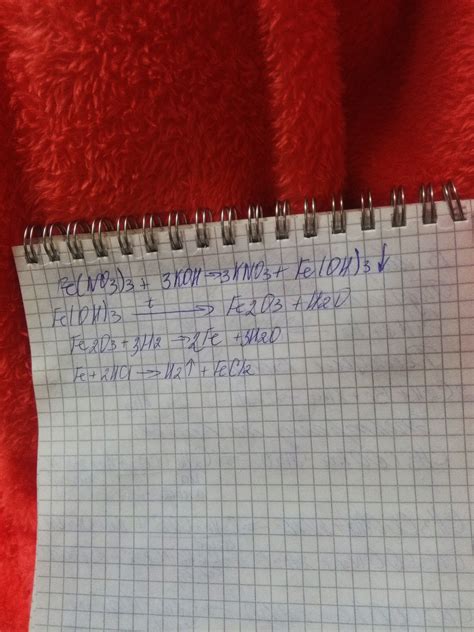 Fe(NO3)3 + 3KOH → 3KNO3 + Fe(OH)3 ↓
Fe(OH)3 t → Fe2O3 + H2O
Fe2O3 + 3H2 → 2Fe + 3H2O
Fe + 2HCl → H2↑ + FeCl2